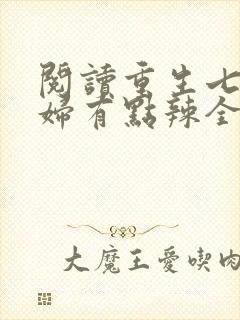 閱讀重生七
婦有點辣全
大魔王愛喫肉